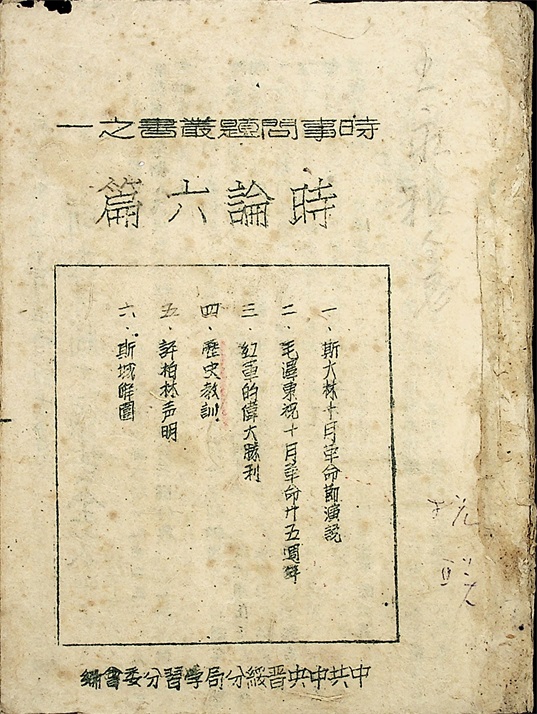 時事問題叢書之一
時論六篇
一、斯大林十月革命節演説
二、毛澤東祝十月革命廿五週年
三、紅軍的偉大勝利
四、歷史教訓
五、評柏林声明
六、斯城解圍
中共中央晋綏分局學習分委會編